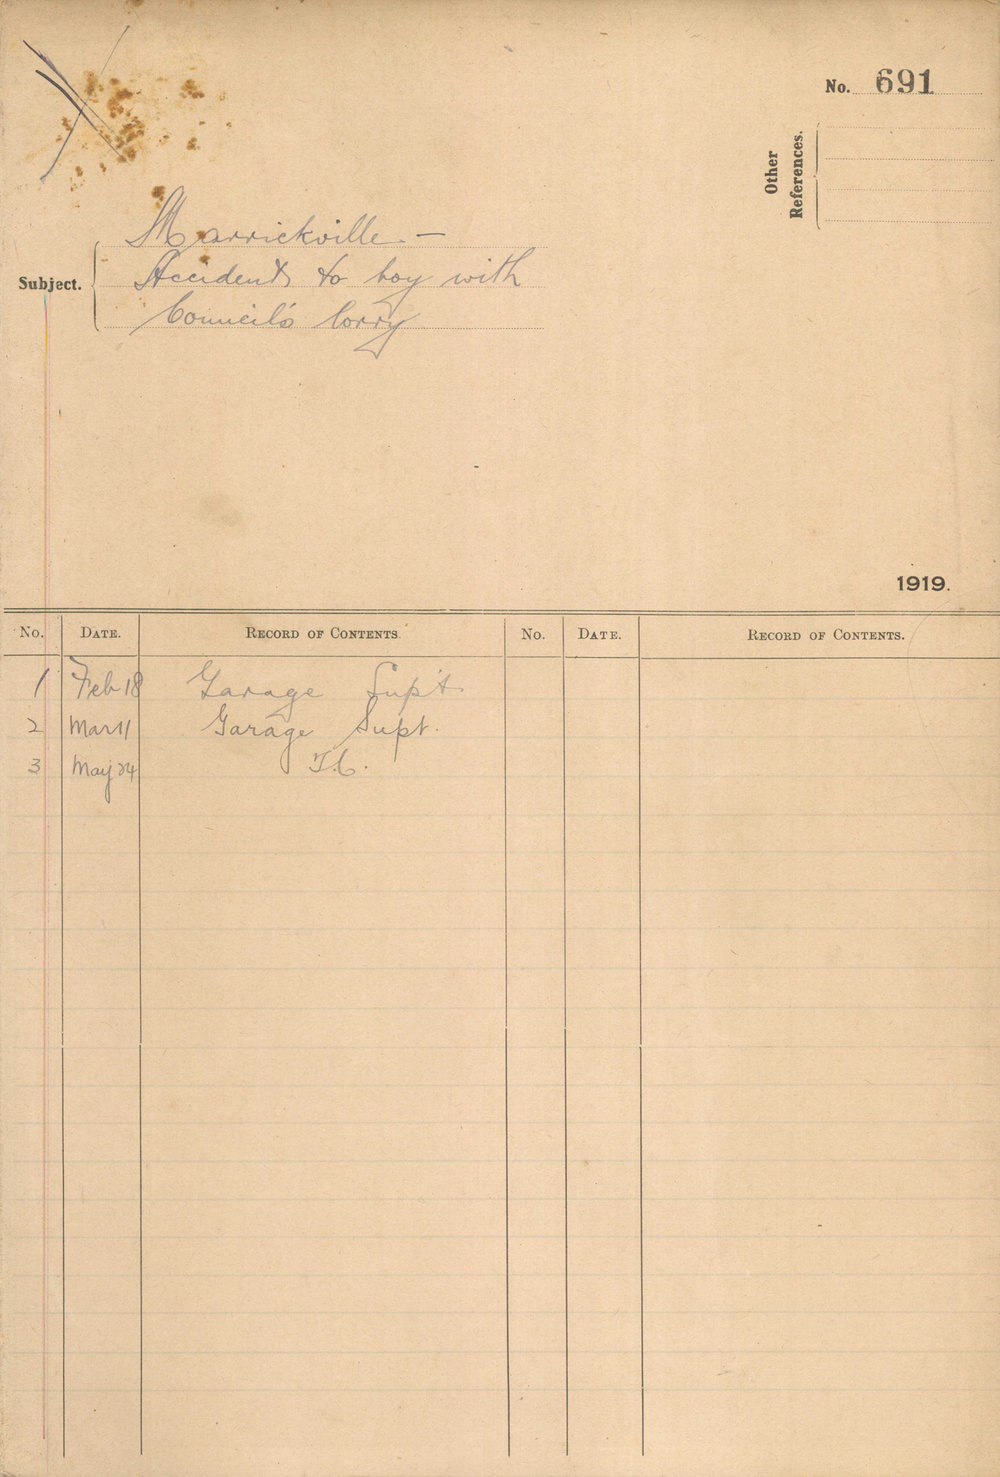 No. 691
Other
References.
Marrickville. —
Subject. Accident to boy with
Council's lorry
1919.
No. DATE. RECORD OF CONTENTS. No. DATE. RECORD OF CONTENTS.
1 Feb 18 Garage Supt.
2 Mar 11 Garage Supt.
3 May 24 T.C.